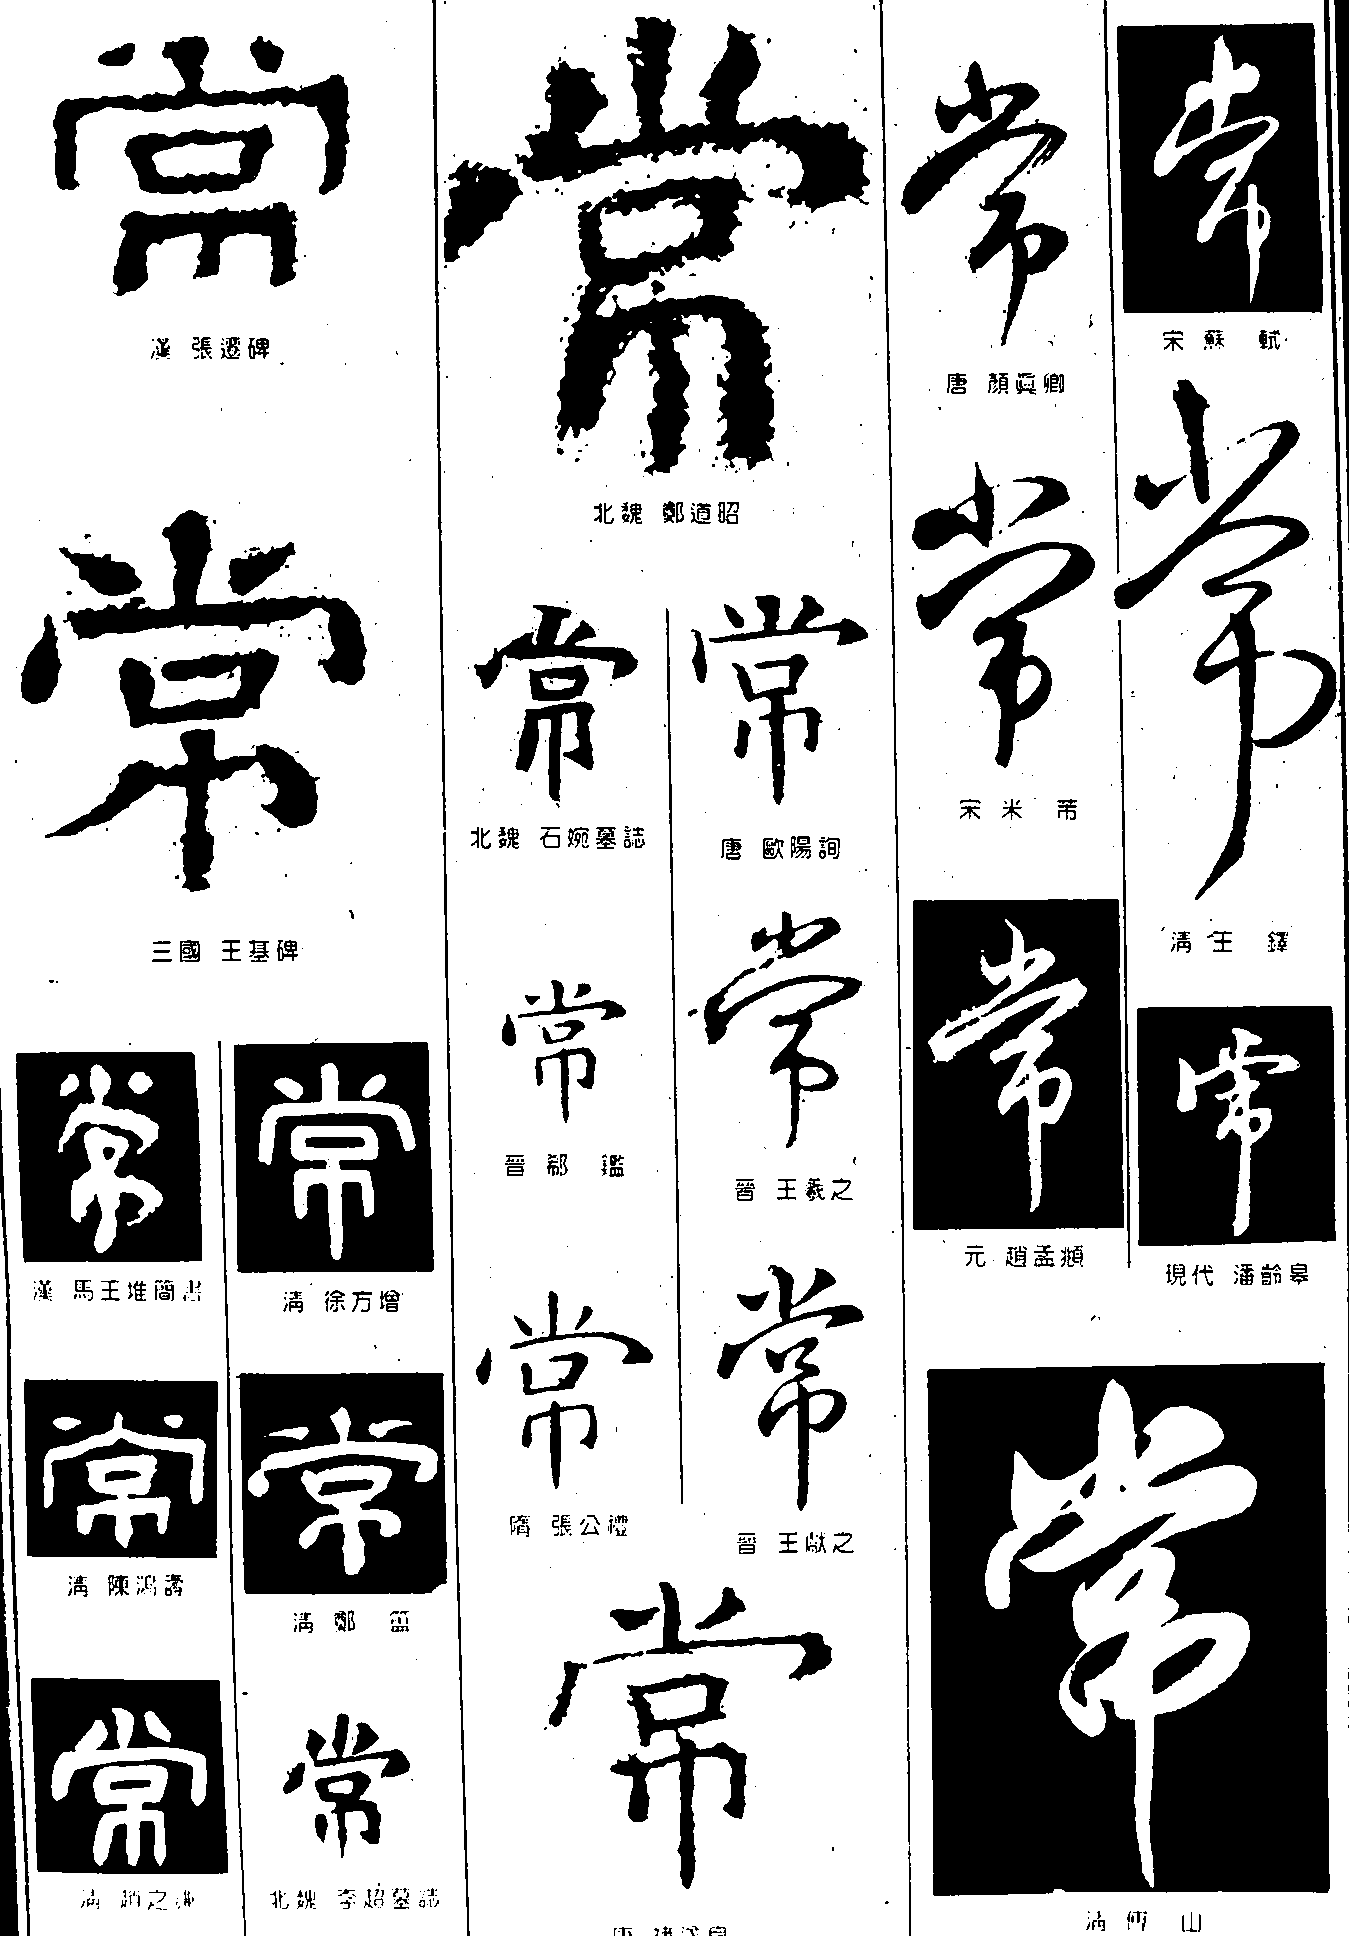 常
漢 張遷碑
常
三國 王基碑
常
漢 馬王堆簡書
常
清 徐方增
常
清 陳鴻壽
常
清 鄭簠
常
清 趙之謙
常
北魏 李超墓誌
常
北魏 鄭道昭
常
北魏 石婉墓誌
常
唐 歐陽詢
常
晉 郗鑑
常
晉 王羲之
常
隋 張公禮
常
晉 王獻之
常
唐 褚遂良
常
唐 顏眞卿
常
宋 蘇軾
常
宋 米芾
常
清 王鐸
常
元 趙孟頫
常
現代 潘齡皋
常
清 傅山